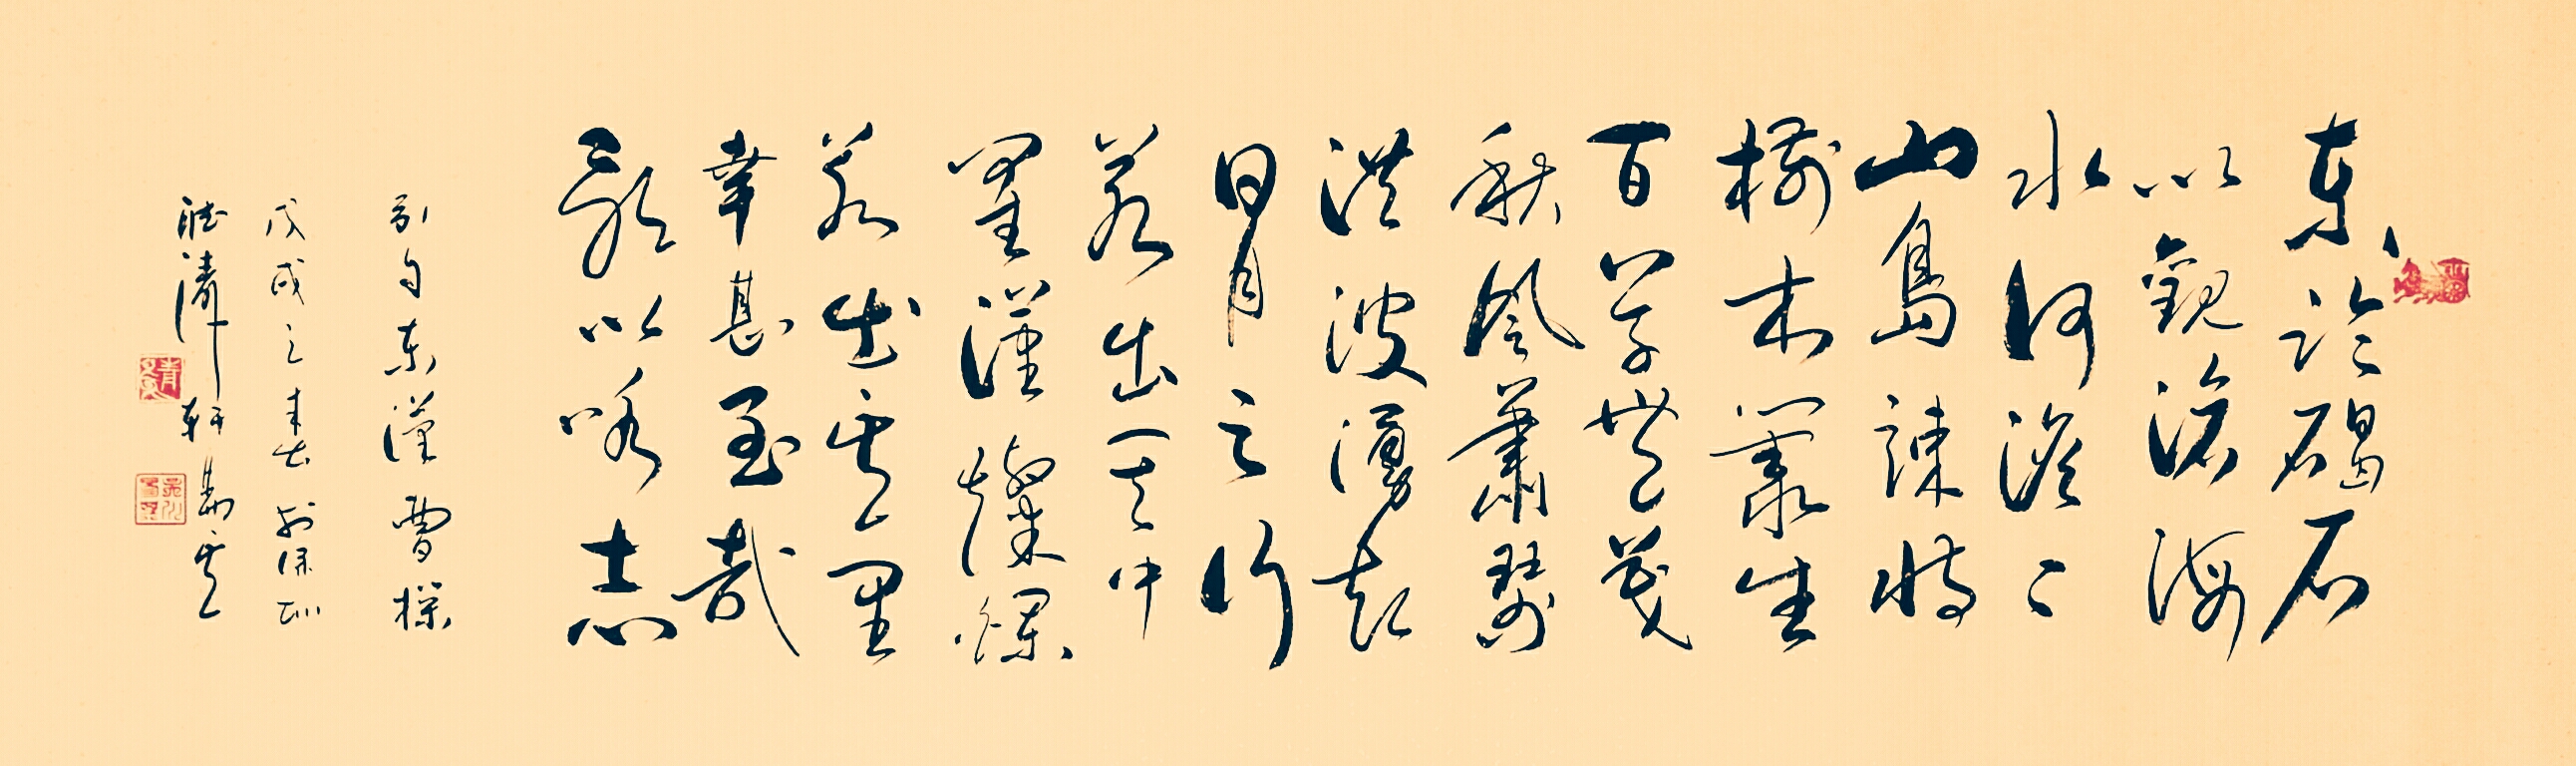 東臨碣石
以觀滄海
水何澹々
山島竦峙
樹木叢生
百草豐茂
秋風蕭瑟
洪波湧起
日月之行
若出其中
星漢燦爛
若出其里
幸甚至哉
歌以咏志
句東漢曹操
戊戌之春於深圳
聽濤軒